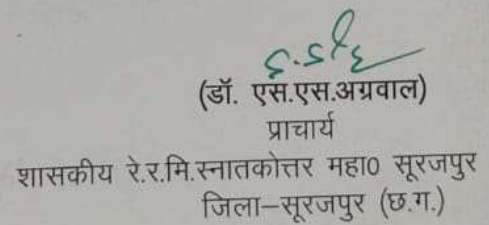 (डॉ. एस.एस.अग्रवाल)
प्राचार्य
शासकीय रे.र.मि.स्नातकोत्तर महा0 सूरजपुर
जिला–सूरजपुर (छ.ग.)